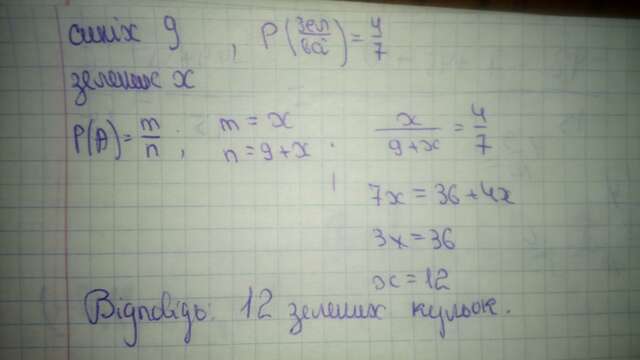 синіх 9 , P(зел/ва) = 4/7
зелених x
P(A) = m/n ; m = x
n = 9+x .
x/(9+x) = 4/7
7x = 36 + 4x
3x = 36
x = 12
Відповідь: 12 зелених кульок.